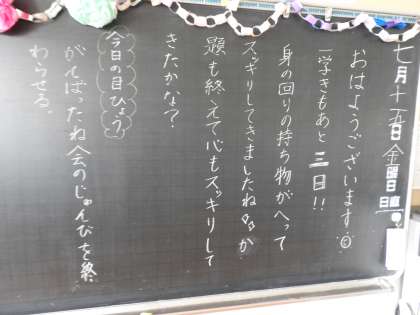 七月十五日金曜日
日直
おはようございます。☺
一学きもあと三日!!
身の回りの持ち物がへって
スッキリしてきましたね。か
題も終えて心もスッキリして
きたかな?
今日の目ひょう
がんばったね会のじゅんびを終
わらせる。